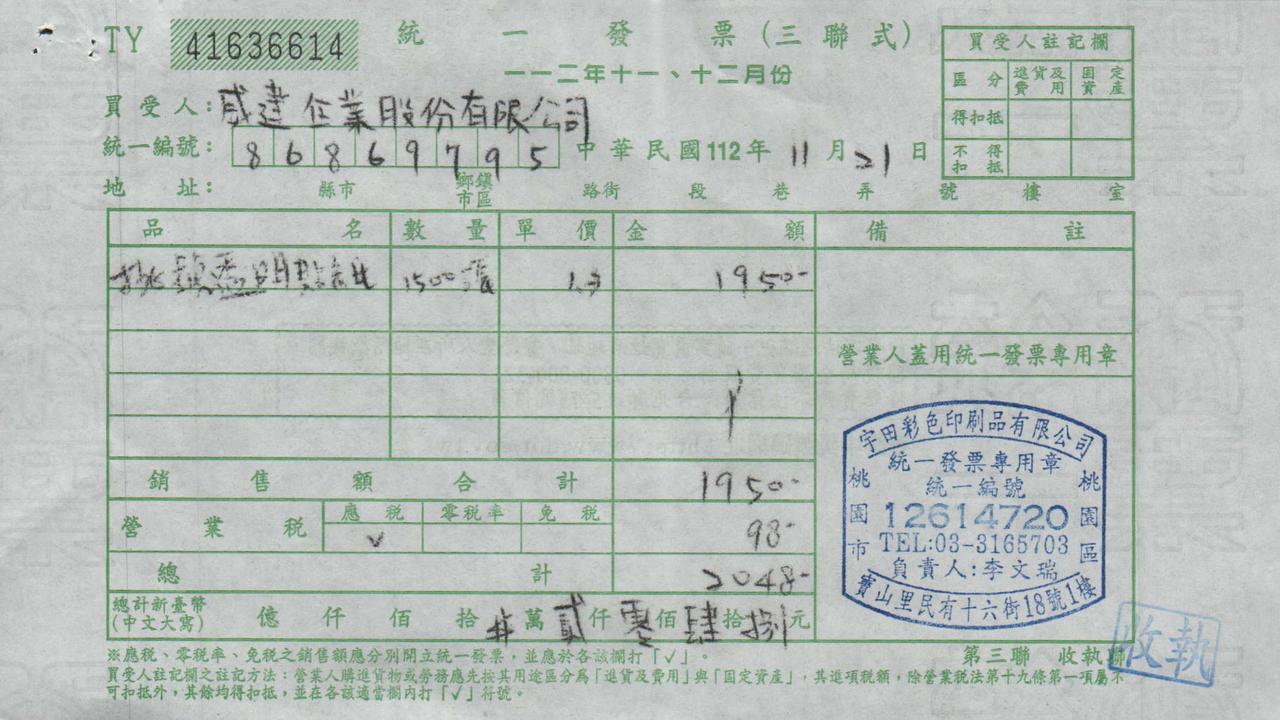 TY 41636614 統一發票(三聯式)
一一二年十一、十二月份
買受人註記欄
區分 進貨及費用 固定資產
得扣抵
不得扣抵
買受人:威建企業股份有限公司
統一編號: 86869795 中華民國112年11月21日
地址: 縣市 鄉鎮市區 路街 段 巷 弄 號 樓 室
品名 數量 單價 金額 備註
1500張 1.3 1950-
營業人蓋用統一發票專用章
銷售額合計 1950-
營業稅 應稅 零稅率 免稅 98-
✓
總計 2048-
總計新臺幣(中文大寫) 億 仟 佰 拾 # 萬 貳 仟 零 佰 肆 拾 捌 元
宇田彩色印刷品有限公司
統一發票專用章
統一編號
12614720
TEL:03-3165703
負責人:李文瑞
桃園市 桃園區
寶山里民有十六街18號1樓
※應稅、零稅率、免稅之銷售額應分別開立統一發票,並應於各該欄打「✓」。
第三聯 收執聯
收執
買受人註記欄之註記方法:營業人購進貨物或勞務應先按其用途區分為「進貨及費用」與「固定資產」,其進項稅額,除營業稅法第十九條第一項屬不
可扣抵外,其餘均得扣抵,並在各該適當欄內打「✓」符號。